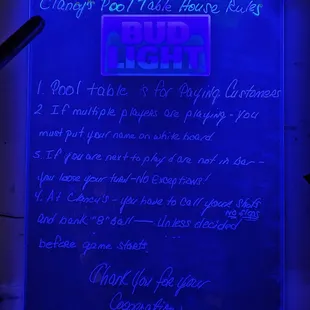 Clancy's Pool Table House Rules
BUD
LIGHT
1. Pool table is for Paying Customers
2. If multiple players are playing - you
must put your name on white board
3. If you are next to play & are not in bar -
you loose your turn - NO Exceptions!
4. At Clancy's - you have to call your shots
no slops
and bank "8" ball — Unless decided
before game starts.
Thank You for your
Cooperation!